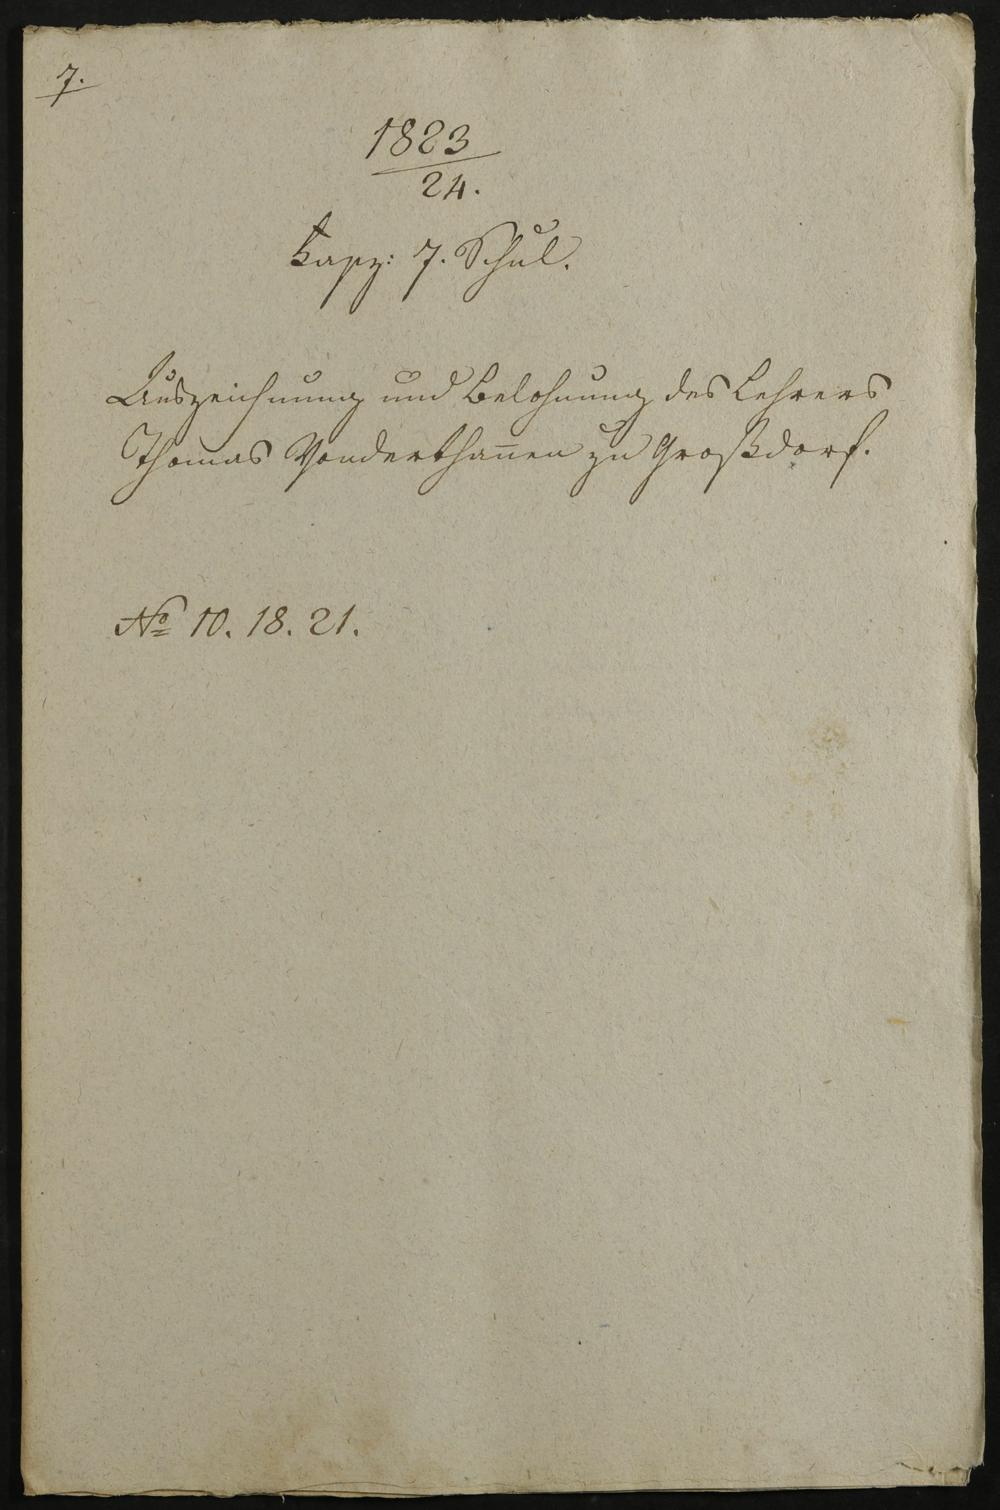 7.
1823
24.
Fasz: 7. Schul.
Auszeichnung und Belohnung des Lehrers
Thomas Vonderthañen zu Großdorf.
No 10. 18. 21.